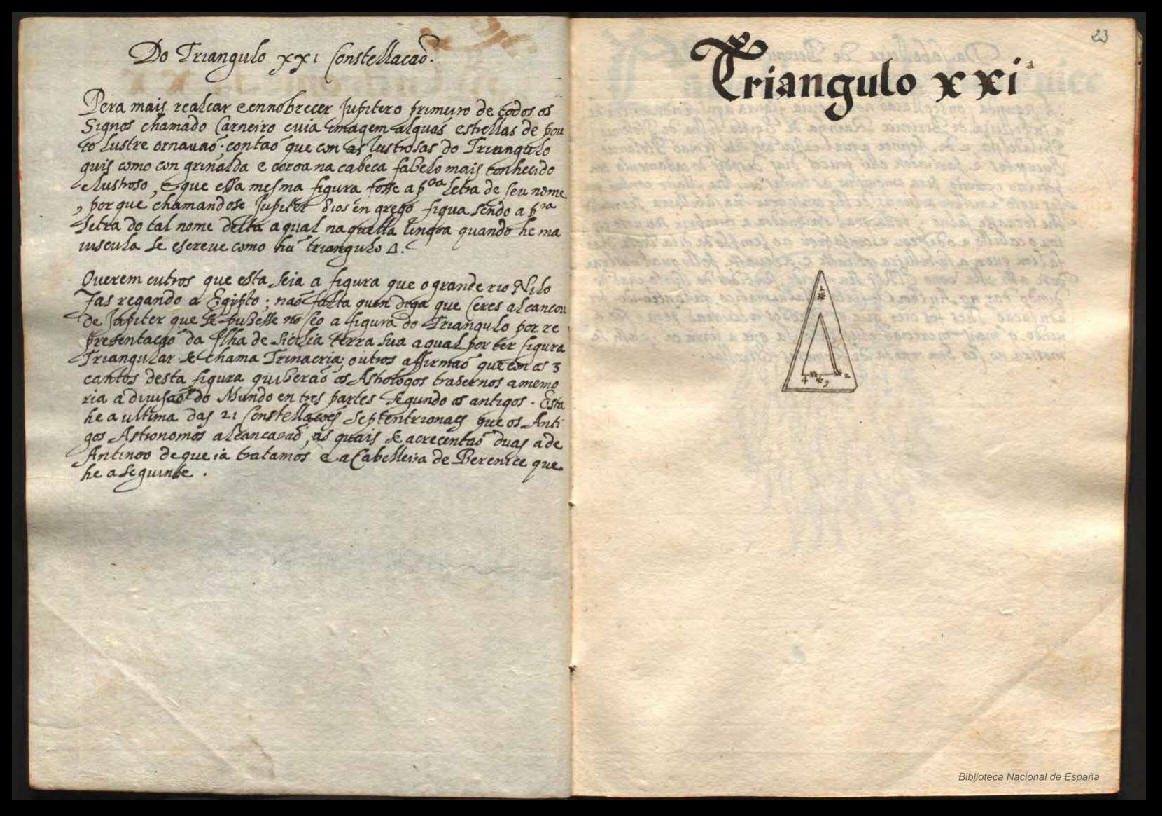 Do Triangulo xxi Constellacaõ.
Pera mais realcar e ennobrecer Jupiter o primeiro de todos os
Signos chamado Carneiro cuia imagem alguas estrellas de pou
co lustre ornavaõ. contaõ que con as lustrosas do Triangolo
quis como con grinalda e coroa na cabeca fazelo mais conhecido
e lustroso, E que essa mesma figura fosse a pra letra de seu nome
, porque chamandose Jupiter Dios en grego figua sendo a pra
letra do tal nome delta a qual naquella lingoa quando he ma
iuscula se escreve como hũ triangulo Δ.
Querem outros que esta seia a figura que o grande rio Nilo
fas regando a Egipto; naõ falta quen diga que Ceres alcancou
de Jupiter que se pusesse no Ceo a figura do Triangulo por re
presentaçaõ da Ilha de Sicilia terra sua a qual por ter figura
Triangular se chama Trinacria; outros affirmaõ que con os 3
cantos desta figura quiseraõ os Astrologos trasernos a memo
ria a divisaõ do Mundo en tres partes segundo os antigos. Esta
he a ultima das 21 Constellaçoẽs Septentrionaes que os Anti
gos Astronomos alcancaraõ, as quais se acrecentaõ duas a de
Antinoo de que ia tratamos e a Cabelleira de Berenice que
he a seguinte.
23
Triangulo xxi
Biblioteca Nacional de España